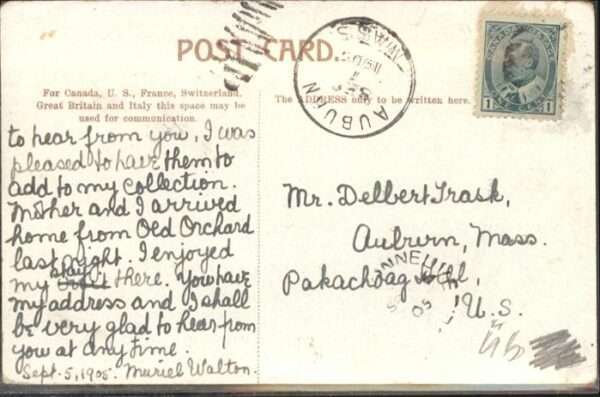 POST CARD.
For Canada, U. S., France, Switzerland,
Great Britain and Italy this space may be
used for communication.
The ADDRESS only to be written here.
AUBURN
MASS.
CANADA POSTAGE
1 1
to hear from you, I was
pleased to have them to
add to my collection.
Mother and I arrived
home from Old Orchard
last night. I enjoyed
my stay there. You have
my address and I shall
be very glad to hear from
you at any time.
Sept. 5, 1905. Muriel Walton.
Mr. Delbert Trask,
Auburn, Mass.
Pakachoag Hill,
U.S.